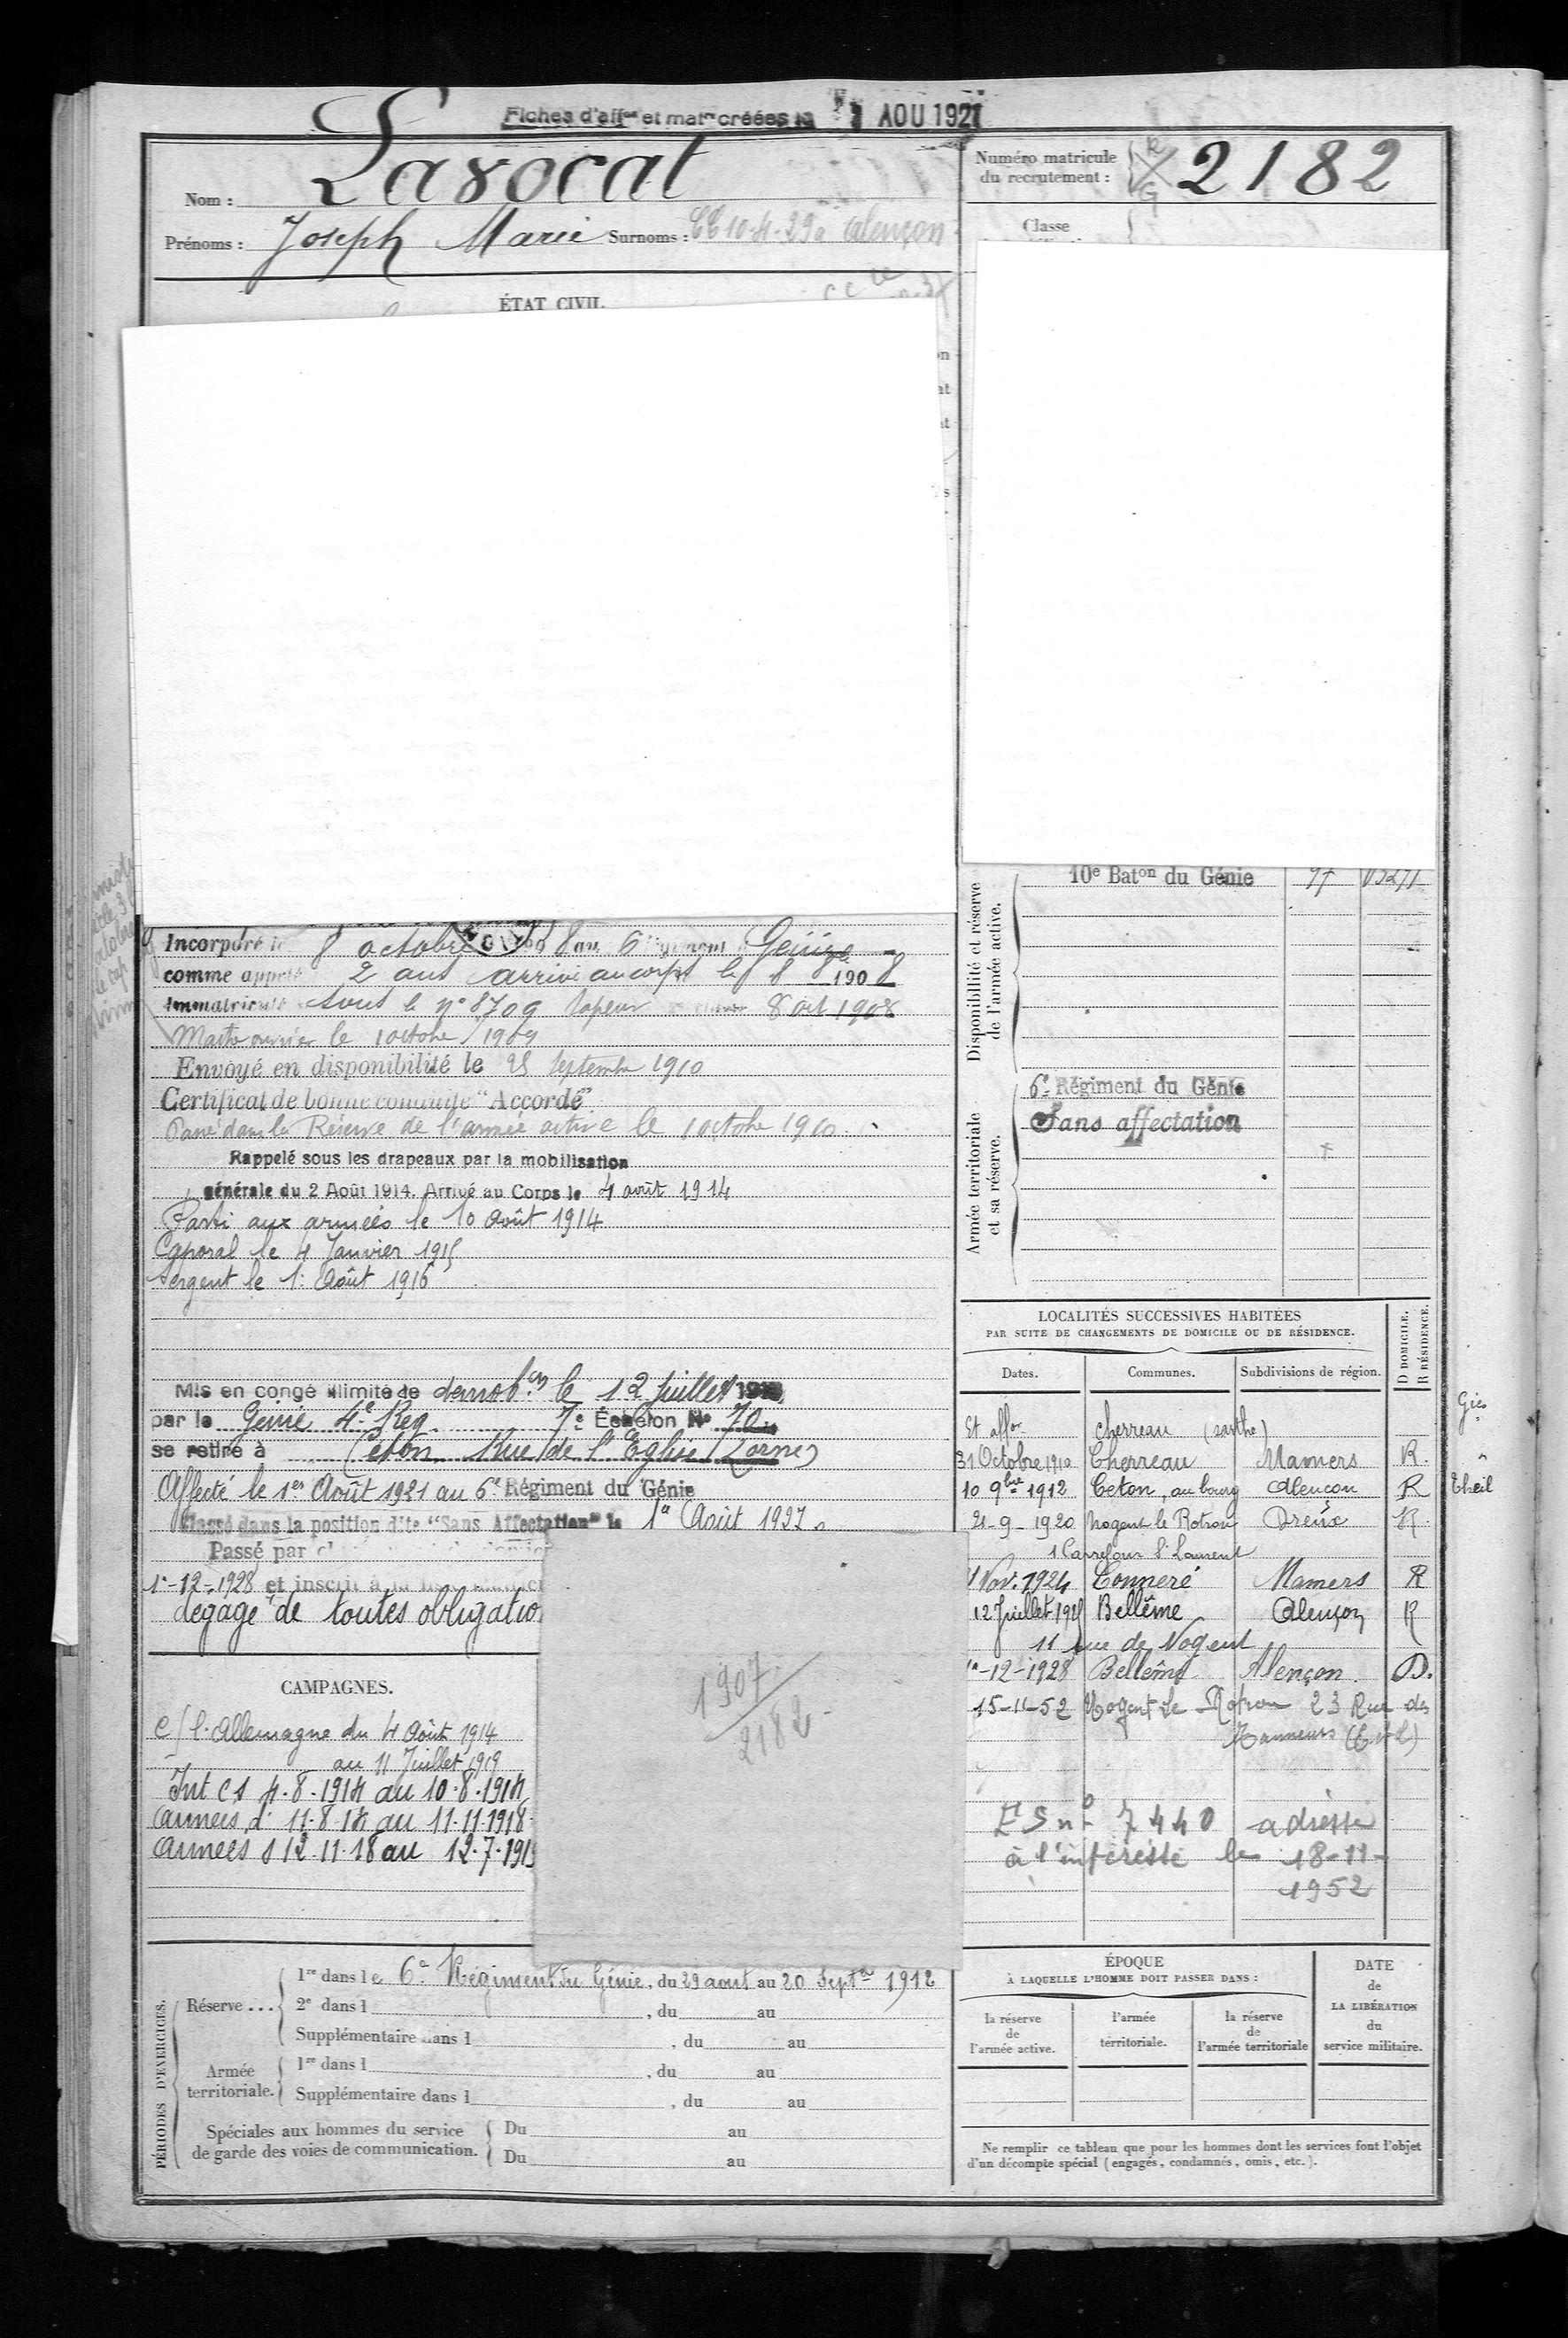 Fiches d'aff^on et mat^le créées le 1 AOU 1927
Nom : Lavocat
Prénoms : Joseph Marie Surnoms : CC 10-4-29 à Alençon
Numéro matricule du recrutement : 2182
Classe
ÉTAT CIVIL.
Incorporé le 8 octobre 8 au 6 Génie
comme appelé 2 ans arrivé au corps le 8 8bre 1908
Immatriculé sous le n° 8709 sapeur 8 oct 1908
Maitre ouvrier le 1 octobre 1909
Envoyé en disponibilité le 25 septembre 1910
Certificat de bonne conduite "Accordé"
Passé dans la Réserve de l'armée active le 1 octobre 1910.
Rappelé sous les drapeaux par la mobilisation
générale du 2 Août 1914. Arrivé au Corps le 4 août 1914
Parti aux armées le 10 Août 1914
Caporal le 4 Janvier 1915
Sergent le 1: Août 1916
Mis en congé illimité de démob.on le 12 Juillet 1919
par le Génie 4e Reg 7e Échelon No 70
se retire à Céton Rue de l'Eglise (orne)
Affecté le 1er Août 1921 au 6e Régiment du Génie
Classé dans la position dite "Sans Affectation" le 1er Août 1927.
Passé par
1er-12-1928 et inscrit à la
dégagé de toutes obligatio
CAMPAGNES.
C/ l'Allemagne du 4 Août 1914
au 11 Juillet 1919
Int CS 4.8.1914 au 10.8.1914
Armées d' 11.8.14 au 11.11.1918
Armées S 12.11.18 au 12.7.191
1907
2182
10e Bat^on du Génie
Disponibilité et réserve
de l'armée active.
6e Régiment du Génie
Sans affectation
Armée territoriale
et sa réserve.
LOCALITÉS SUCCESSIVES HABITÉES
PAR SUITE DE CHANGEMENTS DE DOMICILE OU DE RÉSIDENCE.
D DOMICILE.
R RÉSIDENCE.
Dates. Communes. Subdivisions de région.
Cherreau (sarthe)
31 Octobre 1910 Cherreau Mamers R.
10 9bre 1912 Ceton, au bourg Alençon R
Theil
21-9-1920 Nogent le Rotrou Dreux R.
1 Carrefour St Laurent
4 Nov. 1924 Conneré Mamers R
12 Juillet 1925 Bellême Alençon R
11 rue de Nogent
1er-12-1928 Bellême Alençon. D.
15-11-52 Nogent le Rotrou 23 Rue des
Tanneurs (E et L)
ES n° 7440 adressé
à l'intéressé le 18-11-
1952
PÉRIODES D'EXERCICES.
Réserve ...
1re dans le 6e Régiment du Génie, du 29 aout au 20 Septbre 1912
2e dans l , du au
Supplémentaire dans l , du au
Armée
territoriale.
1re dans l , du au
Supplémentaire dans l , du au
Spéciales aux hommes du service
de garde des voies de communication.
Du au
Du au
ÉPOQUE
À LAQUELLE L'HOMME DOIT PASSER DANS :
la réserve
de
l'armée active.
l'armée
territoriale.
la réserve
de
l'armée territoriale
DATE
de
LA LIBÉRATION
du
service militaire.
Ne remplir ce tableau que pour les hommes dont les services font l'objet
d'un décompte spécial (engagés, condamnés, omis, etc.).